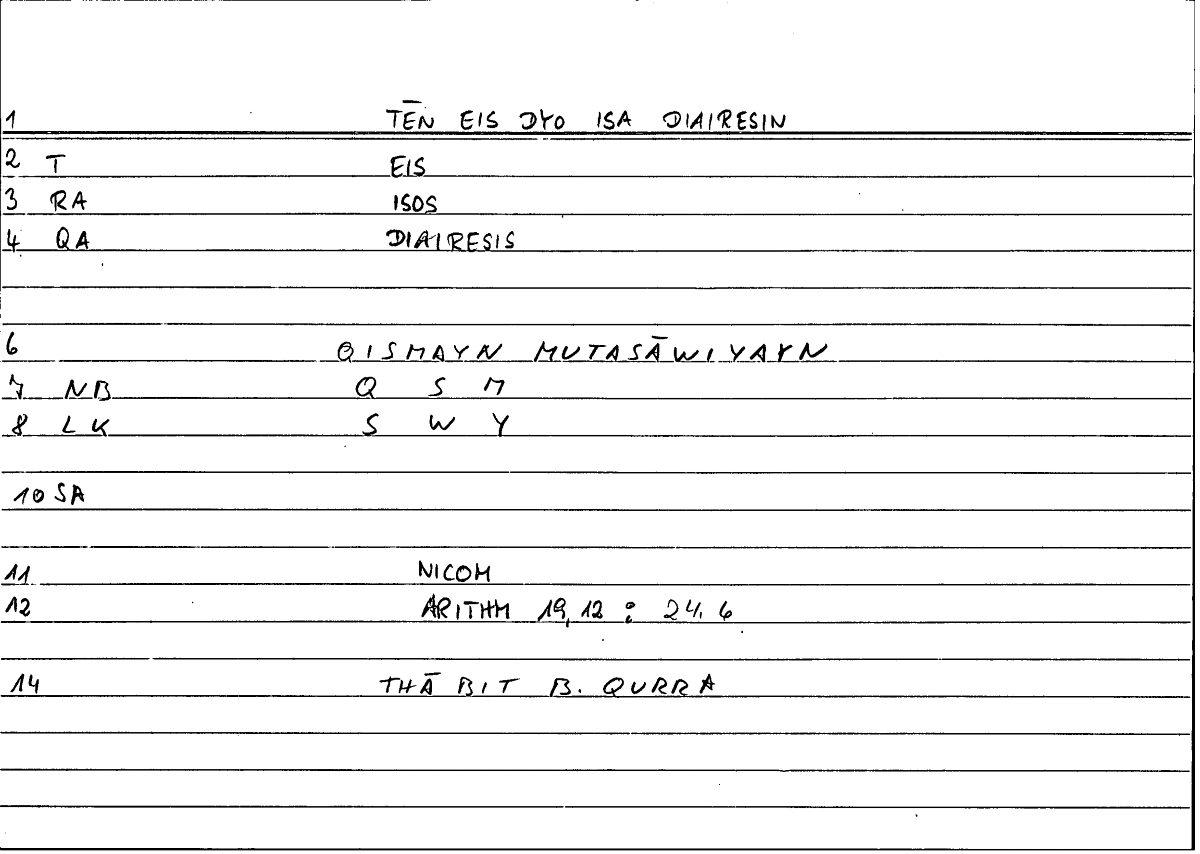 1 TĒN EIS DYO ISA DIAIRESIN
2 T EIS
3 RA ISOS
4 QA DIAIRESIS
6 QISMAYN MUTASĀWIYAYN
7 NB Q S M
8 LK S W Y
10 SA
11 NICOM
12 ARITHM 19,12 : 24,6
14 THĀBIT B. QURRA